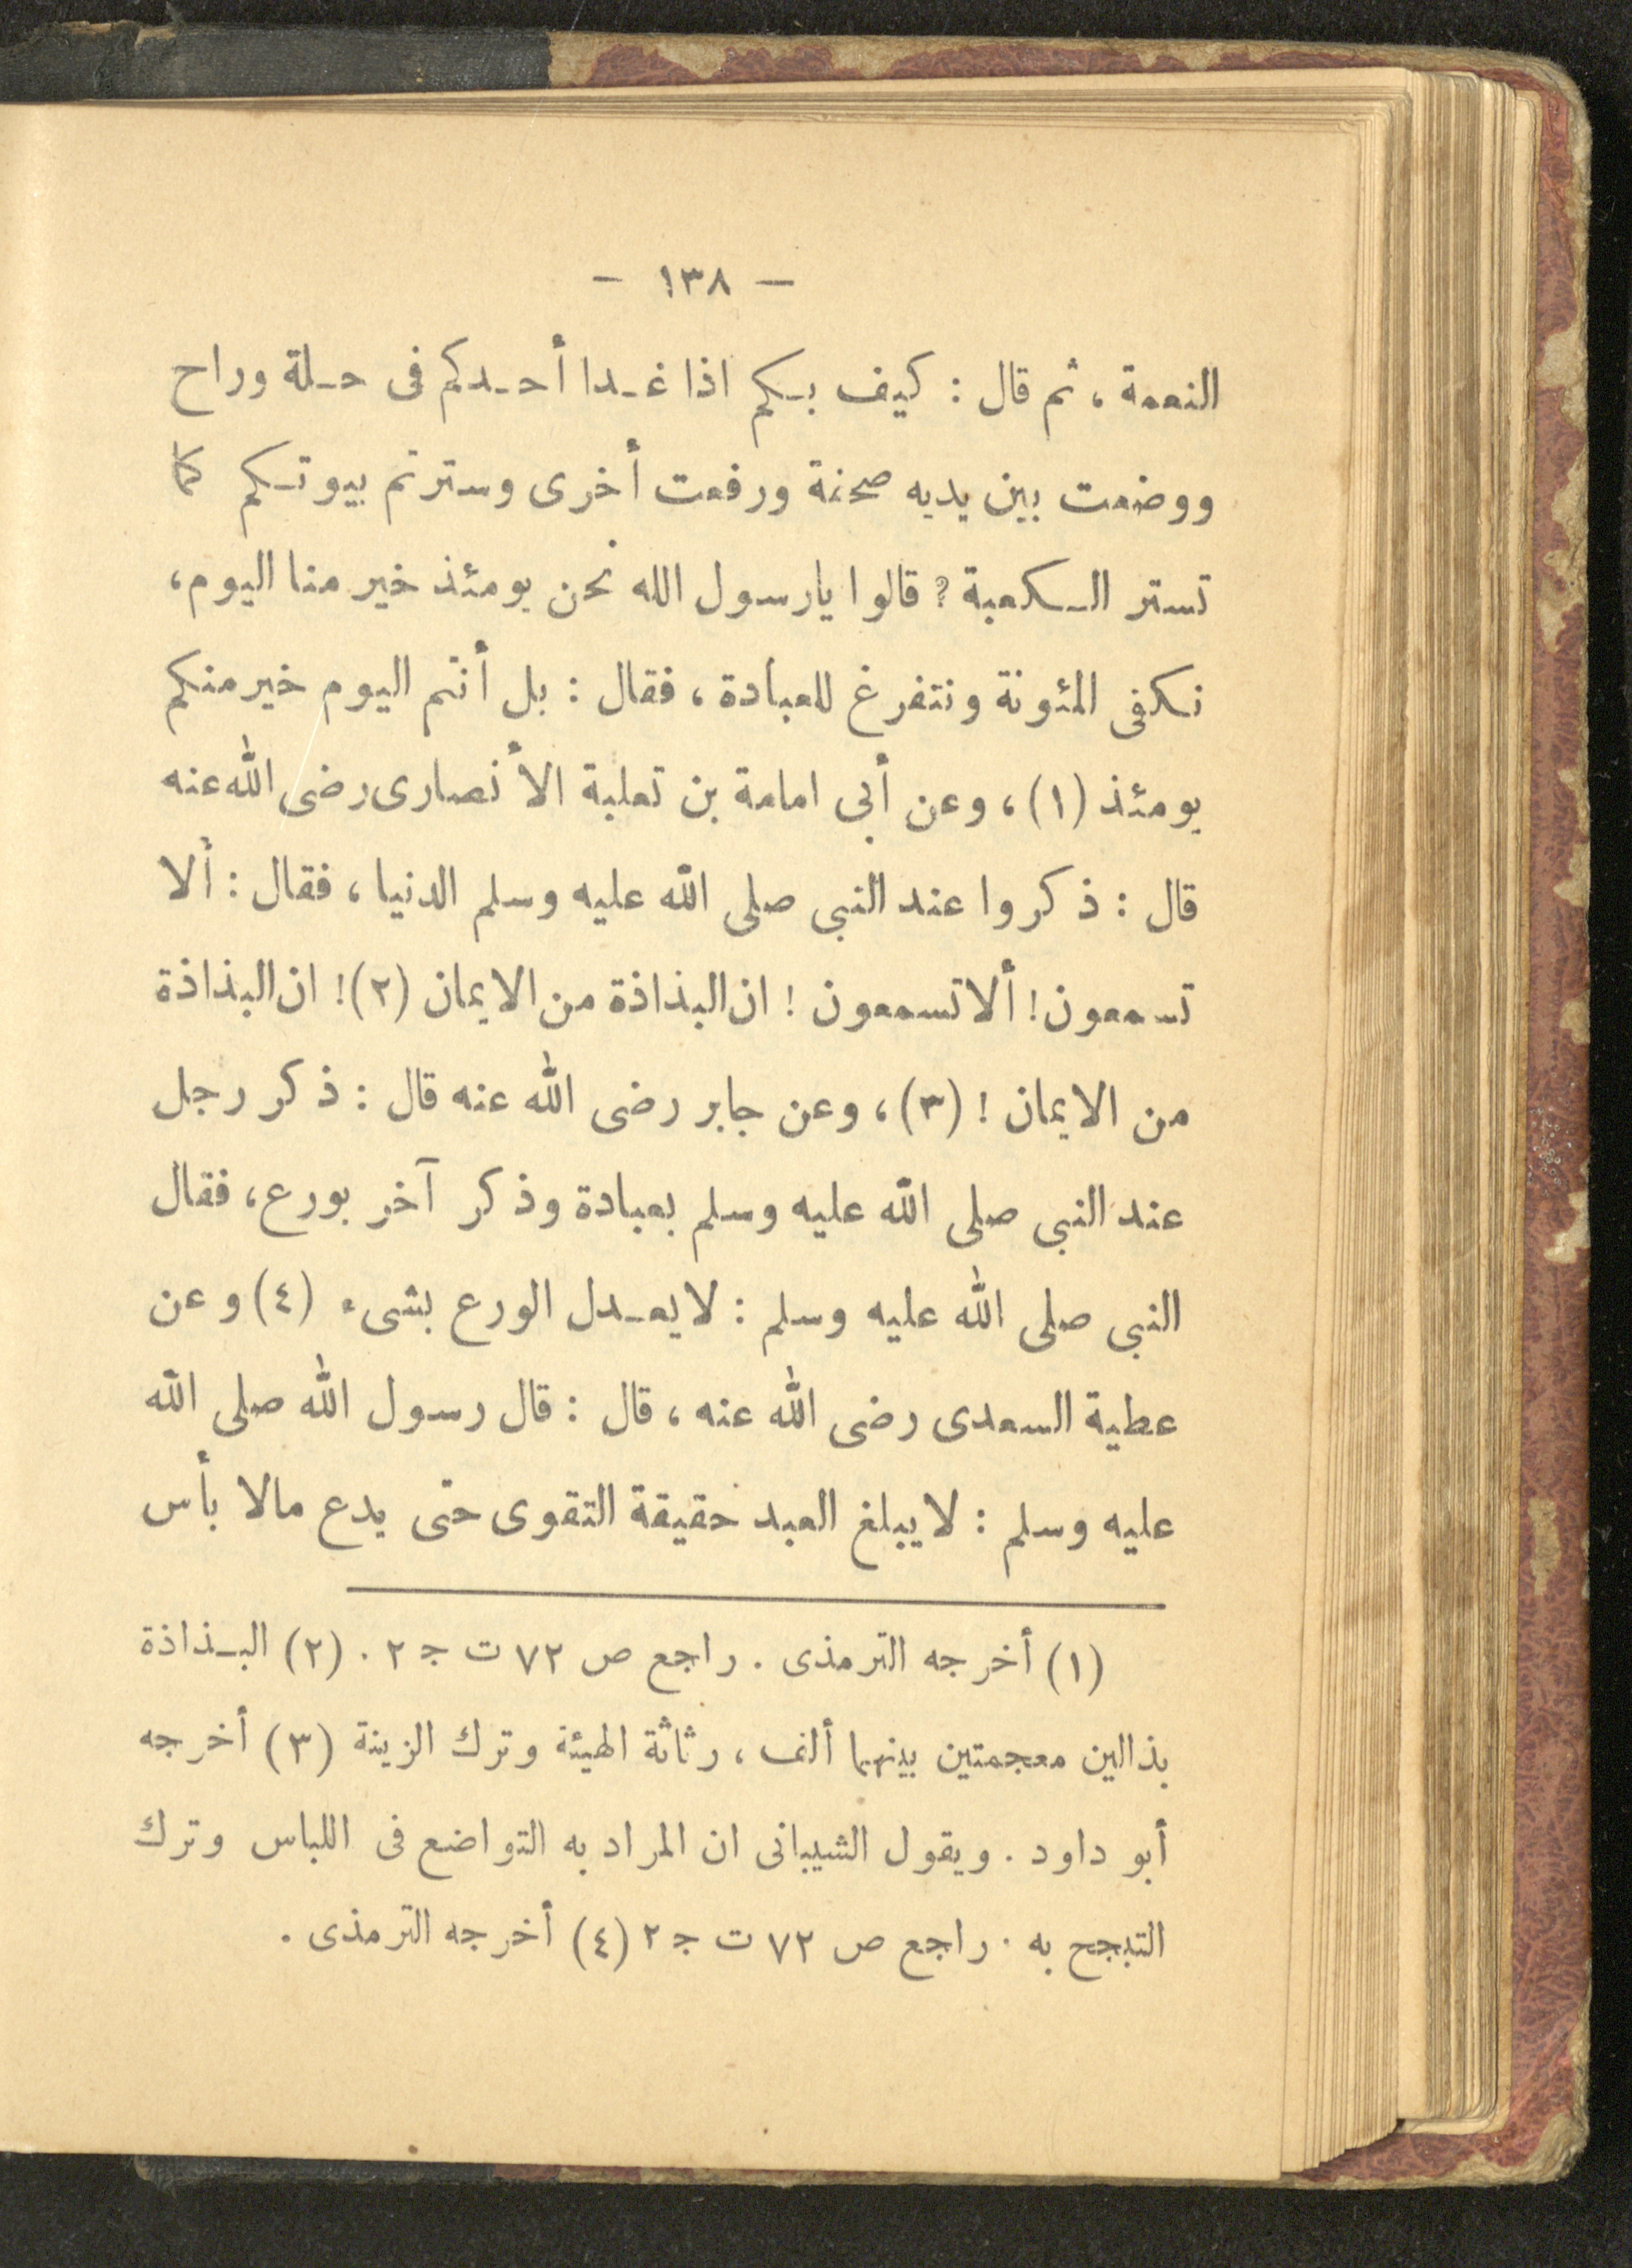 — ١٣٨ —
النعمة ، ثم قال : كيف بكم اذا غدا أحدكم فى حلة وراح
ووضعت بين يديه صحفة ورفعت أخرى وسترتم بيوتكم كما
تستر الكعبة ? قالوا يارسول الله نحن يومئذ خير منا اليوم ،
نكفى المئونة ونتفرغ للعبادة ، فقال : بل أنتم اليوم خير منكم
يومئذ (١) ، وعن أبى امامة بن ثعلبة الأنصارى رضى الله عنه
قال : ذكروا عند النبى صلى الله عليه وسلم الدنيا ، فقال : ألا
تسمعون ! ألا تسمعون ! ان البذاذة من الايمان (٢) ! ان البذاذة
من الايمان ! (٣) ، وعن جابر رضى الله عنه قال : ذكر رجل
عند النبى صلى الله عليه وسلم بعبادة وذكر آخر بورع ، فقال
النبى صلى الله عليه وسلم : لا يعدل الورع بشىء (٤) وعن
عطية السعدى رضى الله عنه ، قال : قال رسول الله صلى الله
عليه وسلم : لا يبلغ العبد حقيقة التقوى حتى يدع مالا بأس
(١) أخرجه الترمذى . راجع ص ٧٢ ت ج ٢ . (٢) البذاذة
بذالين معجمتين بينهما ألف ، رثاثة الهيئة وترك الزينة (٣) أخرجه
أبو داود . ويقول الشيبانى ان المراد به التواضع فى اللباس وترك
التبجح به . راجع ص ٧٢ ت ج ٢ (٤) أخرجه الترمذى .